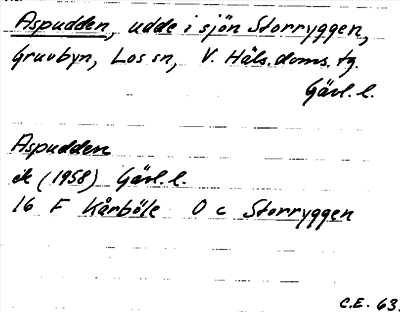 Aspudden, udde i sjön Storryggen,
Gruvbyn, Los sn, V. Häls. doms. tg.
Gävl. l.
Aspudden
ek (1958) Gävl. l.
16 F Kårböle O c Storryggen
C.E. 63.